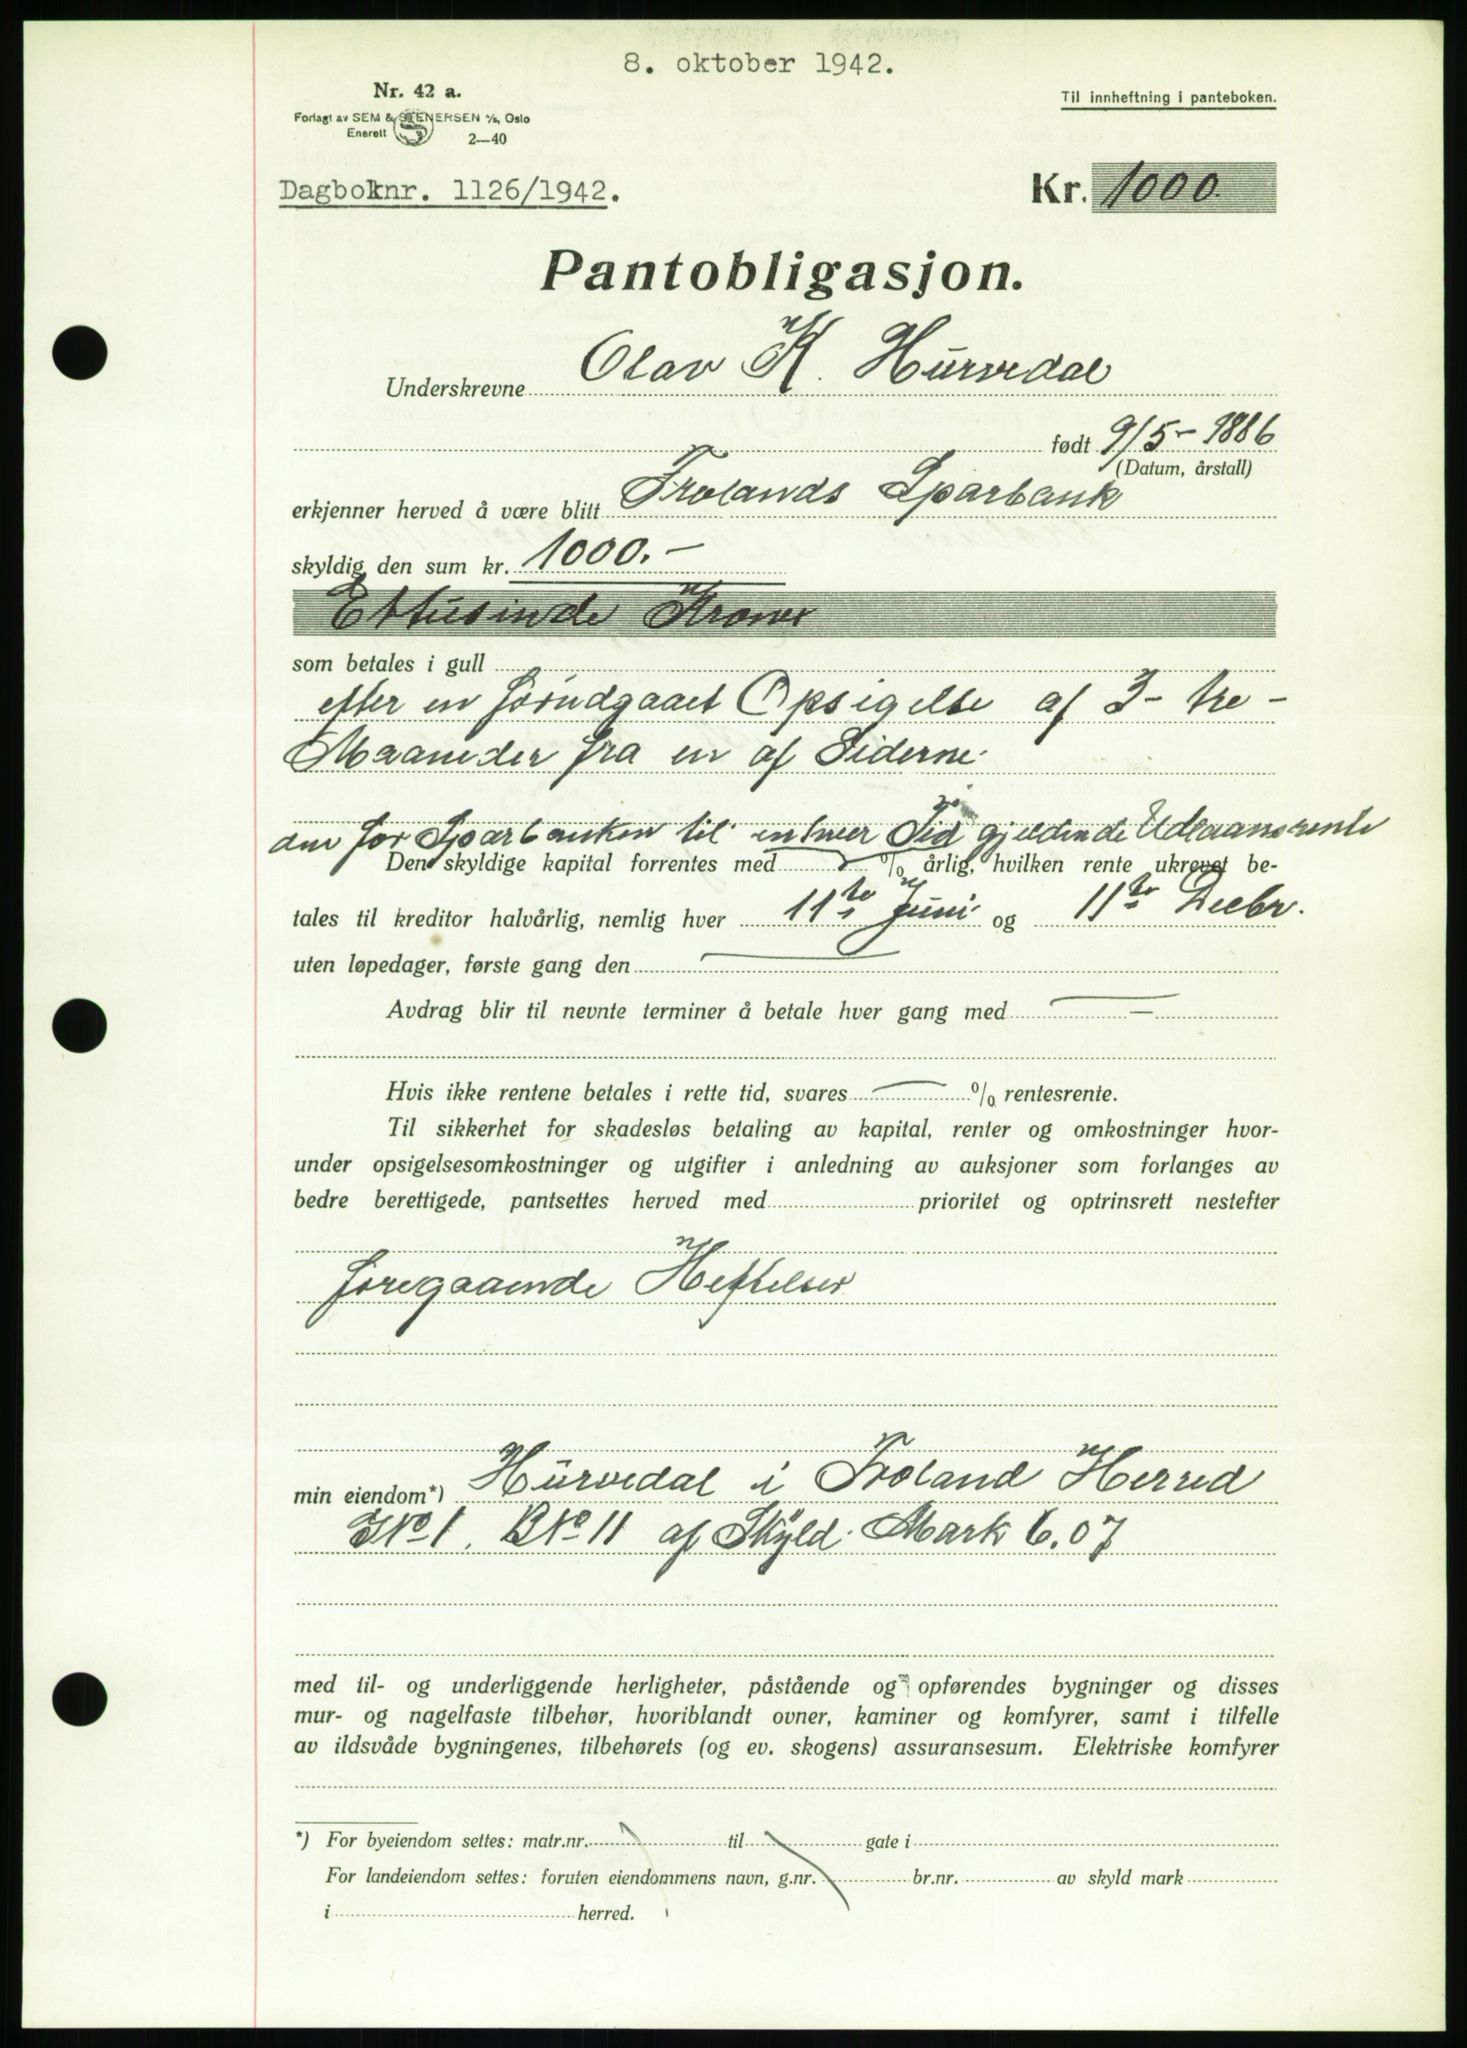 8. oktober 1942.
Nr. 42 a.
Til innheftning i panteboken.
Forlagt av SEM & STENERSEN A/S, Oslo
Enerett
2—40
Dagboknr. 1126/1942.
Kr. 1000.
Pantobligasjon.
Underskrevne Olav K. Hürvedal
født 9/5 - 1886
(Datum, årstall)
erkjenner herved å være blitt Frolands Sparbank
skyldig den sum kr. 1000.-
Ettusinde Kroner
som betales i gull
efter en forudgaaet Opsigelse af 3 - tre -
Maaneder fra en af Siderne.
den for Sparbanken til enhver Tid gjeldende Udlaansrente
Den skyldige kapital forrentes med % årlig, hvilken rente ukrevet be-
tales til kreditor halvårlig, nemlig hver 11te Juni og 11te Decbr.
uten løpedager, første gang den
Avdrag blir til nevnte terminer å betale hver gang med —
Hvis ikke rentene betales i rette tid, svares % rentesrente.
Til sikkerhet for skadesløs betaling av kapital, renter og omkostninger hvor-
under opsigelsesomkostninger og utgifter i anledning av auksjoner som forlanges av
bedre berettigede, pantsettes herved med prioritet og optrinsrett nestefter
foregaaende Heftelser
min eiendom*) Hürvedal i Froland Herred
GNo 1. BNo 11 af Skyld Mark 6.07
med til- og underliggende herligheter, påstående og opførendes bygninger og disses
mur- og nagelfaste tilbehør, hvoriblandt ovner, kaminer og komfyrer, samt i tilfelle
av ildsvåde bygningenes, tilbehørets (og ev. skogens) assuransesum. Elektriske komfyrer
*) For byeiendom settes: matr.nr. til gate i
For landeiendom settes: foruten eiendommens navn, g.nr. br.nr. av skyld mark
i herred.